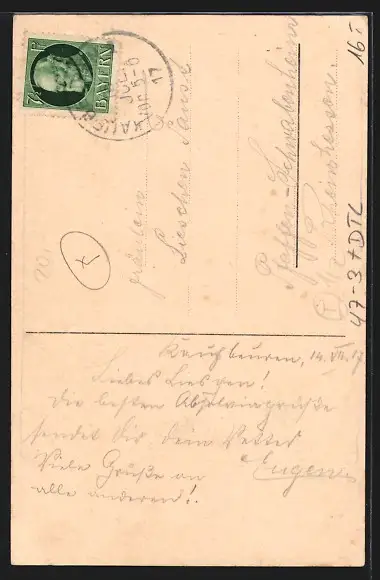 BAYERN
7½
KAUFB
JUL
VOR 5-6
17
Fräulein
Lieschen Sans
Pfaffen-Schwabenheim
Rheinhessen.
16-
47-3 ADTL
20,
x
Kaufbeuren, 14. VII. 17
Liebes Lieschen!
Die besten Absolviagrüße
sendet Dir dein Vetter
Eugen
Viele Grüße an
alle anderen!